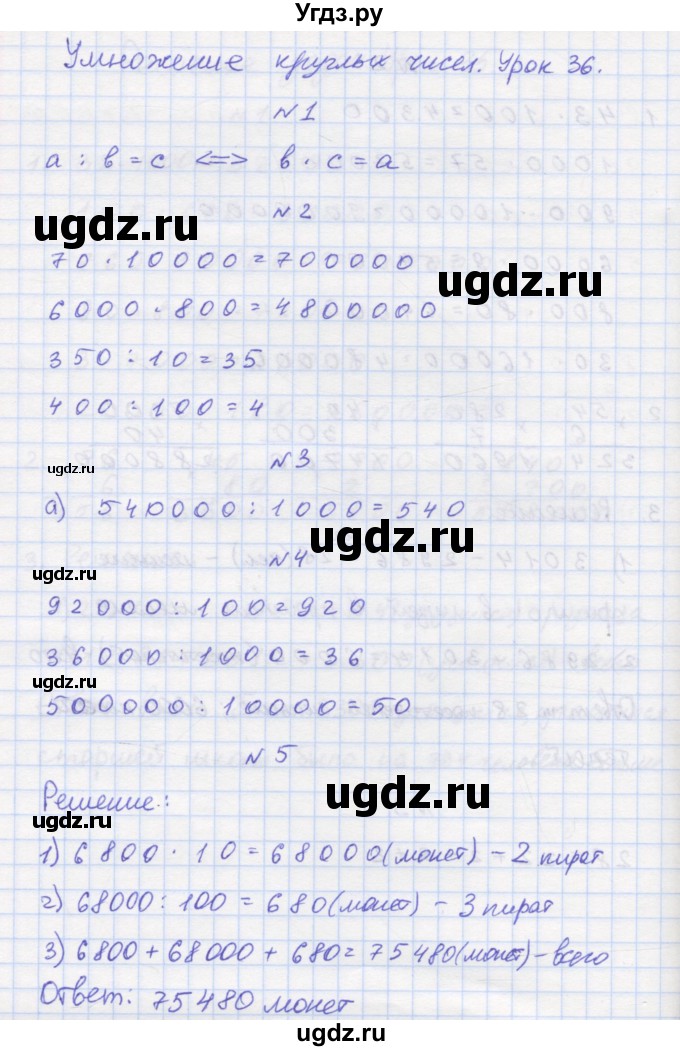 Угдз.ру
Умножение круглых чисел. Урок 36.
№1
а : в = с <=> в · с = а
ugdz.ru
№2
70 · 10000 = 700000
ugdz.ru
6000 · 800 = 4800000
350 : 10 = 35
400 : 100 = 4
ugdz.ru
№3
а) 540000 : 1000 = 540
ugdz.ru
№4
ugdz.ru
92000 : 100 = 920
36000 : 1000 = 36
ugdz.ru
500000 : 10000 = 50
№5
Решение:
ugdz.ru
ugdz.ru
1) 6800 · 10 = 68000 (монет) – 2 пират
2) 68000 : 100 = 680 (монет) – 3 пират
3) 6800 + 68000 + 680 = 75480 (монет) – всего
Ответ: 75480 монет
ugdz.ru